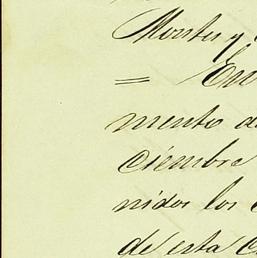 Montes y
= En
mento de
ciembre
nidos los
de esta C